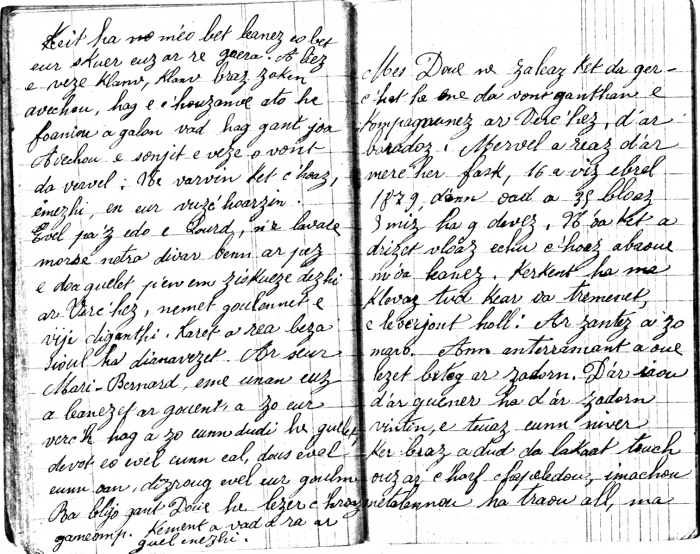 Keit ha ma méo bet leanez eo bet
eur skuer euz ar re goera. A bez
e veze klanv, klanv braz zoken
avechou, hag e c'houzanve ato he
foaniou a galon vad hag gant joa
Avechou e sonjit e veze o vont
da vervel: Ne varvin ket c'hoaz,
emezhi, en eur vuzc'hoarzin.
Evel pa'z edo e Lourd, n'e lavare
morse netra divar benn ar pez
e doa guelet p'en em ziskueze dezhi
ar Verc'hez, nemet goulennet e
vije diganthi. Karet a rea beza
sioul ha dianavezet. Ar seur
Mari-Bernard, eme unan euz
a leanezed ar gouent, a zo eur
verc'h hag a zo eunn dudi he guelet,
devot eo evel eunn eal, dous evel
eunn oan, dizroug evel eur goulm
Ra blijo gant Doue he lezer c'hoaz
ganeomp. Kement a vad a ra ar
guel anezhi.
Mes Doue ne zaleaz ket da ger-
c'hat he ene da vont ganthan e
kompagnunez ar Verc'hez, d'ar
baradoz. Mervel a reaz d'ar
merc'her fask, 16 a viz ebrel
1879 d'ann oad a 35 bloaz
3 miz ha 9 devez. N'oa ket a
drizek vloaz echu c'hoaz abaoue
m'oa leanez. Kerkent ha ma
klevaz tud kear oa tremenet,
e leverjont holl: Ar zantez a zo
maro. Ann anterramant a oue
lezet beteg ar zadorn. D'ar iaou
d'ar guener ha d'ar zadorn
vintin, e teuaz eunn niver
ker braz a dud da lakaat touch
ouz ar c'horf chapeledou, imachou
metalennou ha traou all, ma